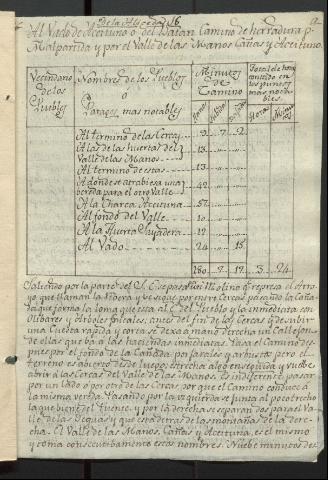 De la Alseda 16
Al Vado de Aceituno o del Batan Camino de herradura p.r
Malpartida y por el Valle de las Manos, Cañas y Aceituno.
Vecindario de los Pueblos
Nombre de los Pueblos ó Parages mas notables
Minutos de Camino
Total de horas contado en los puntos mas notables
Llano Subida Bajada
Horas Minutos
Al termino de las Cercas 9 7 2
A las de las huertas del Valle de las Manos 13
Al termino de estas 13
A donde se atrabiesa una vereda para el otro Valle 42
A la Charca Aceituna 57
Al fondo del Valle 10
A la Huerta 12
Al Vado 24 15
180 7 17 3 24
Saliendo por la parte del S. E. se pasa un Molino q.e represa el Arro-
yo que llaman la Ribera y se sigue por entre Cercas pasando la Caña-
da que forma la loma que esta al E. del Pueblo y la inmediata con
Olibares y Arboles frutales, antes del fin de las Cercas q.e es subir
una Cuesta rapida y corta se dexa a mano derecha un Callejon
de ellas que ba a las haciendas inmediatas. Pasa el Camino des-
pues por el fondo de la Cañada por jarales y arbustos pero el
terreno es abierto desde luego a derecha algo en seguida y vuelbe
a abrir a las Cercas del Valle de las Manos. Es indiferente pasar
por un lado o por otro de las Cercas, por que el Camino conduce á
la misma vereda. Pasando por la izquierda se junta al poco trecho
la que biene del Puente, y por la derecha se separan dos para el Va-
lle de las Beguias y que estaderas de las montañas de la dere-
cha. El Valle de las Manos, Cañas y Aceituna, es el mismo
y toma consecutibamente estos nombres. Nuebe minutos des